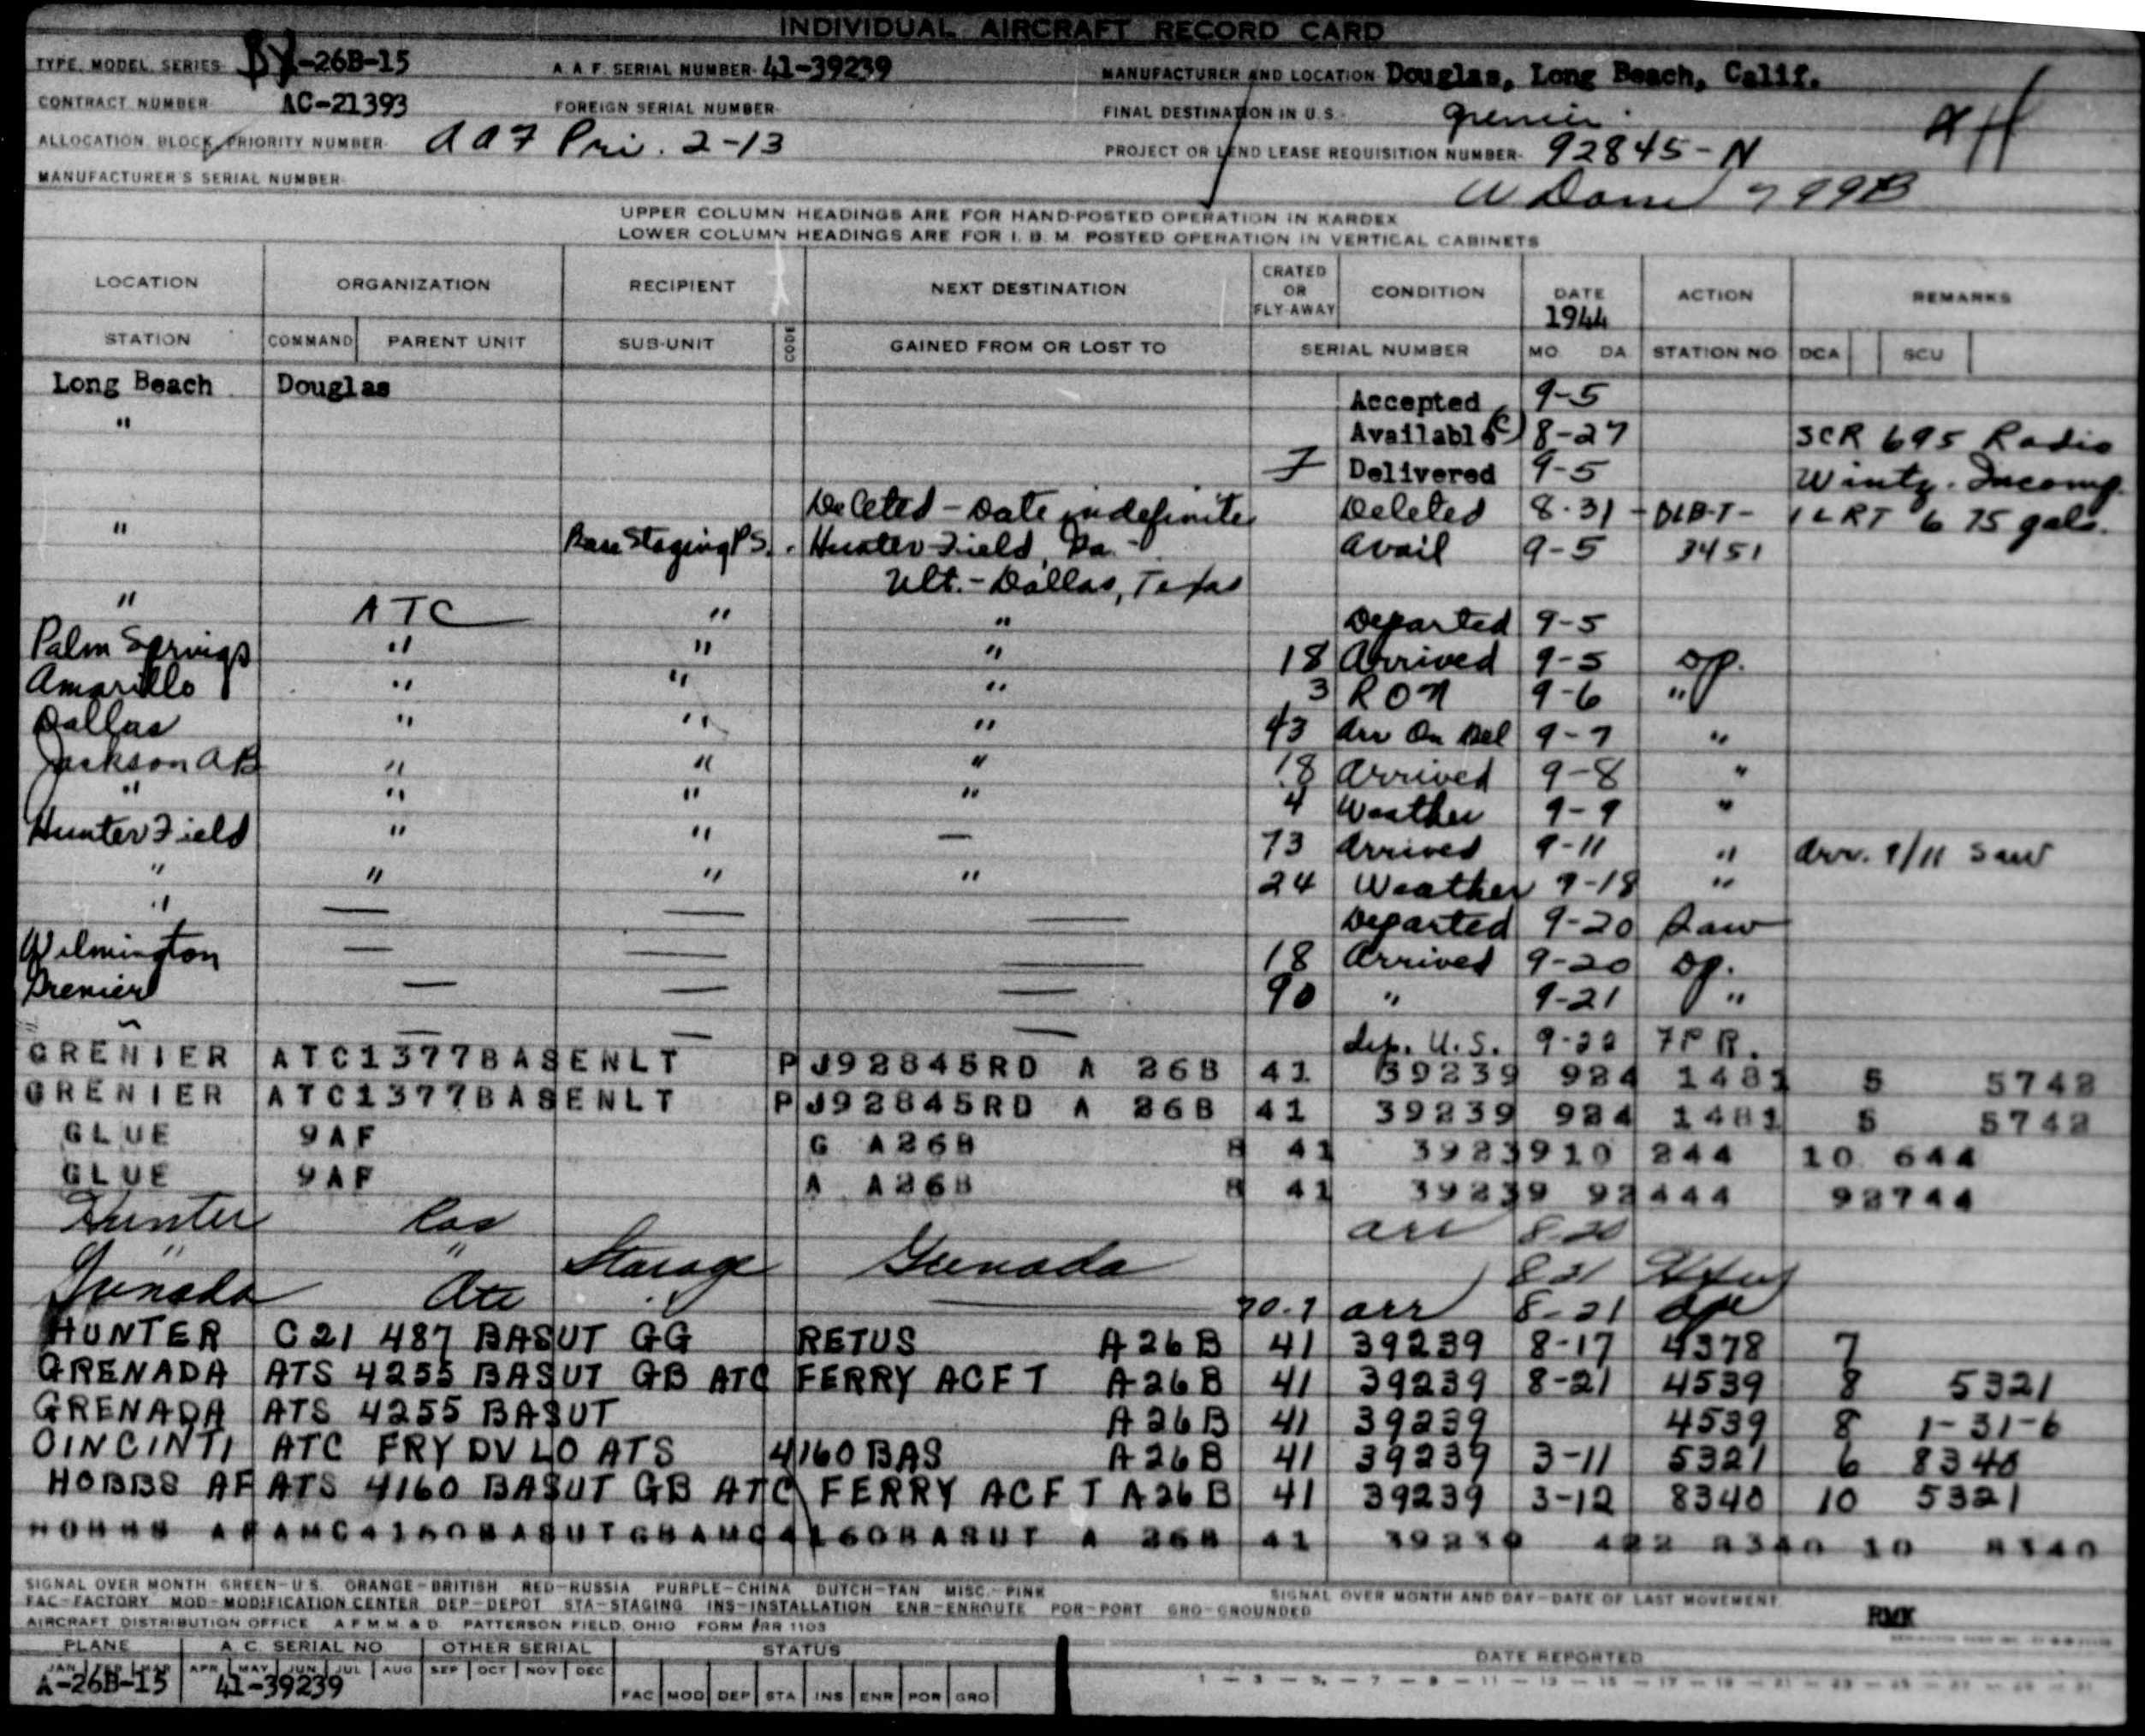 INDIVIDUAL AIRCRAFT RECORD CARD
TYPE, MODEL, SERIES -26B-15 A A F. SERIAL NUMBER- 41-39239 MANUFACTURER AND LOCATION- Douglas, Long Beach, Calif.
CONTRACT NUMBER AC-21393 FOREIGN SERIAL NUMBER- FINAL DESTINATION IN U.S.- Grenier
ALLOCATION BLOCK, PRIORITY NUMBER- AAF Pri. 2-13 PROJECT OR LEND LEASE REQUISITION NUMBER- 92845-N
MANUFACTURER'S SERIAL NUMBER-
UPPER COLUMN HEADINGS ARE FOR HAND-POSTED OPERATION IN KARDEX
LOWER COLUMN HEADINGS ARE FOR I. B. M. POSTED OPERATION IN VERTICAL CABINETS
LOCATION ORGANIZATION RECIPIENT NEXT DESTINATION CRATED OR FLY-AWAY CONDITION DATE 1944 ACTION REMARKS
STATION COMMAND PARENT UNIT SUB-UNIT CODE GAINED FROM OR LOST TO SERIAL NUMBER MO DA STATION NO DCA SCU
Long Beach Douglas Accepted 9-5
" Available 8-27 SCR 695 Radio
F Delivered 9-5 Wintz. Incomp.
Deleted - Date indefinite Deleted 8-31 - DLB-T- 1 LRT 675 gals.
" Base Staging P.S. Hunter Field, Ga. - Avail 9-5 3451
Ult. - Dallas, Texas
" ATC " " Departed 9-5
Palm Springs " " " 18 Arrived 9-5 op.
Amarillo " " " 3 RON 9-6 "
Dallas " " " 43 Arr On Del 9-7 "
Jackson AB " " " 18 Arrived 9-8 "
" " " " 4 Weather 9-9 "
Hunter Field " " — 73 Arrived 9-11 " Arr. 9/11 Saw
" " " " 24 Weather 9-18 "
" — — — Departed 9-20 Saw
Wilmington — — — 18 Arrived 9-20 op.
Grenier — — — 90 " 9-21 "
— — — dep. U.S. 9-22 FPR.
GRENIER ATC1377BASENLT P J92845RD A 26B 41 39239 924 1481 5 5742
GRENIER ATC1377BASENLT P J92845RD A 26B 41 39239 924 1481 5 5742
GLUE 9AF G A26B B 41 3923910 244 10 644
GLUE 9AF A A26B B 41 39239 92444 92744
Hunter arr 8-20
" " Storage Grenada 8-21
Grenada Atc — 70-7 arr 8-21
HUNTER C21 487 BASUT GG RETUS A26B 41 39239 8-17 4378 7
GRENADA ATS 4255 BASUT GB ATC FERRY ACFT A-26B 41 39239 8-21 4539 8 5321
GRENADA ATS 4255 BASUT A26B 41 39239 4539 8 1-31-6
CINCINTI ATC FRY DV LO ATS 4160 BAS A26B 41 39239 3-11 5321 6 8340
HOBBS AF ATS 4160 BASUT GB ATC FERRY ACFT A26B 41 39239 3-12 8340 10 5321
HOBBS AFAMC4160BASUTGBAMC4160BASUT A 26B 41 39239 422 8340 10 8340
SIGNAL OVER MONTH GREEN-U.S. ORANGE-BRITISH RED-RUSSIA PURPLE-CHINA DUTCH-TAN MISC.-PINK SIGNAL OVER MONTH AND DAY-DATE OF LAST MOVEMENT
FAC-FACTORY MOD-MODIFICATION CENTER DEP-DEPOT STA-STAGING INS-INSTALLATION ENR-ENROUTE POR-PORT GRO-GROUNDED RMK
AIRCRAFT DISTRIBUTION OFFICE A F M M & D PATTERSON FIELD, OHIO FORM 1103
PLANE A C SERIAL NO OTHER SERIAL STATUS DATE REPORTED
JAN FEB MAR APR MAY JUN JUL AUG SEP OCT NOV DEC
A-26B-15 41-39239 FAC MOD DEP STA INS ENR POR GRO